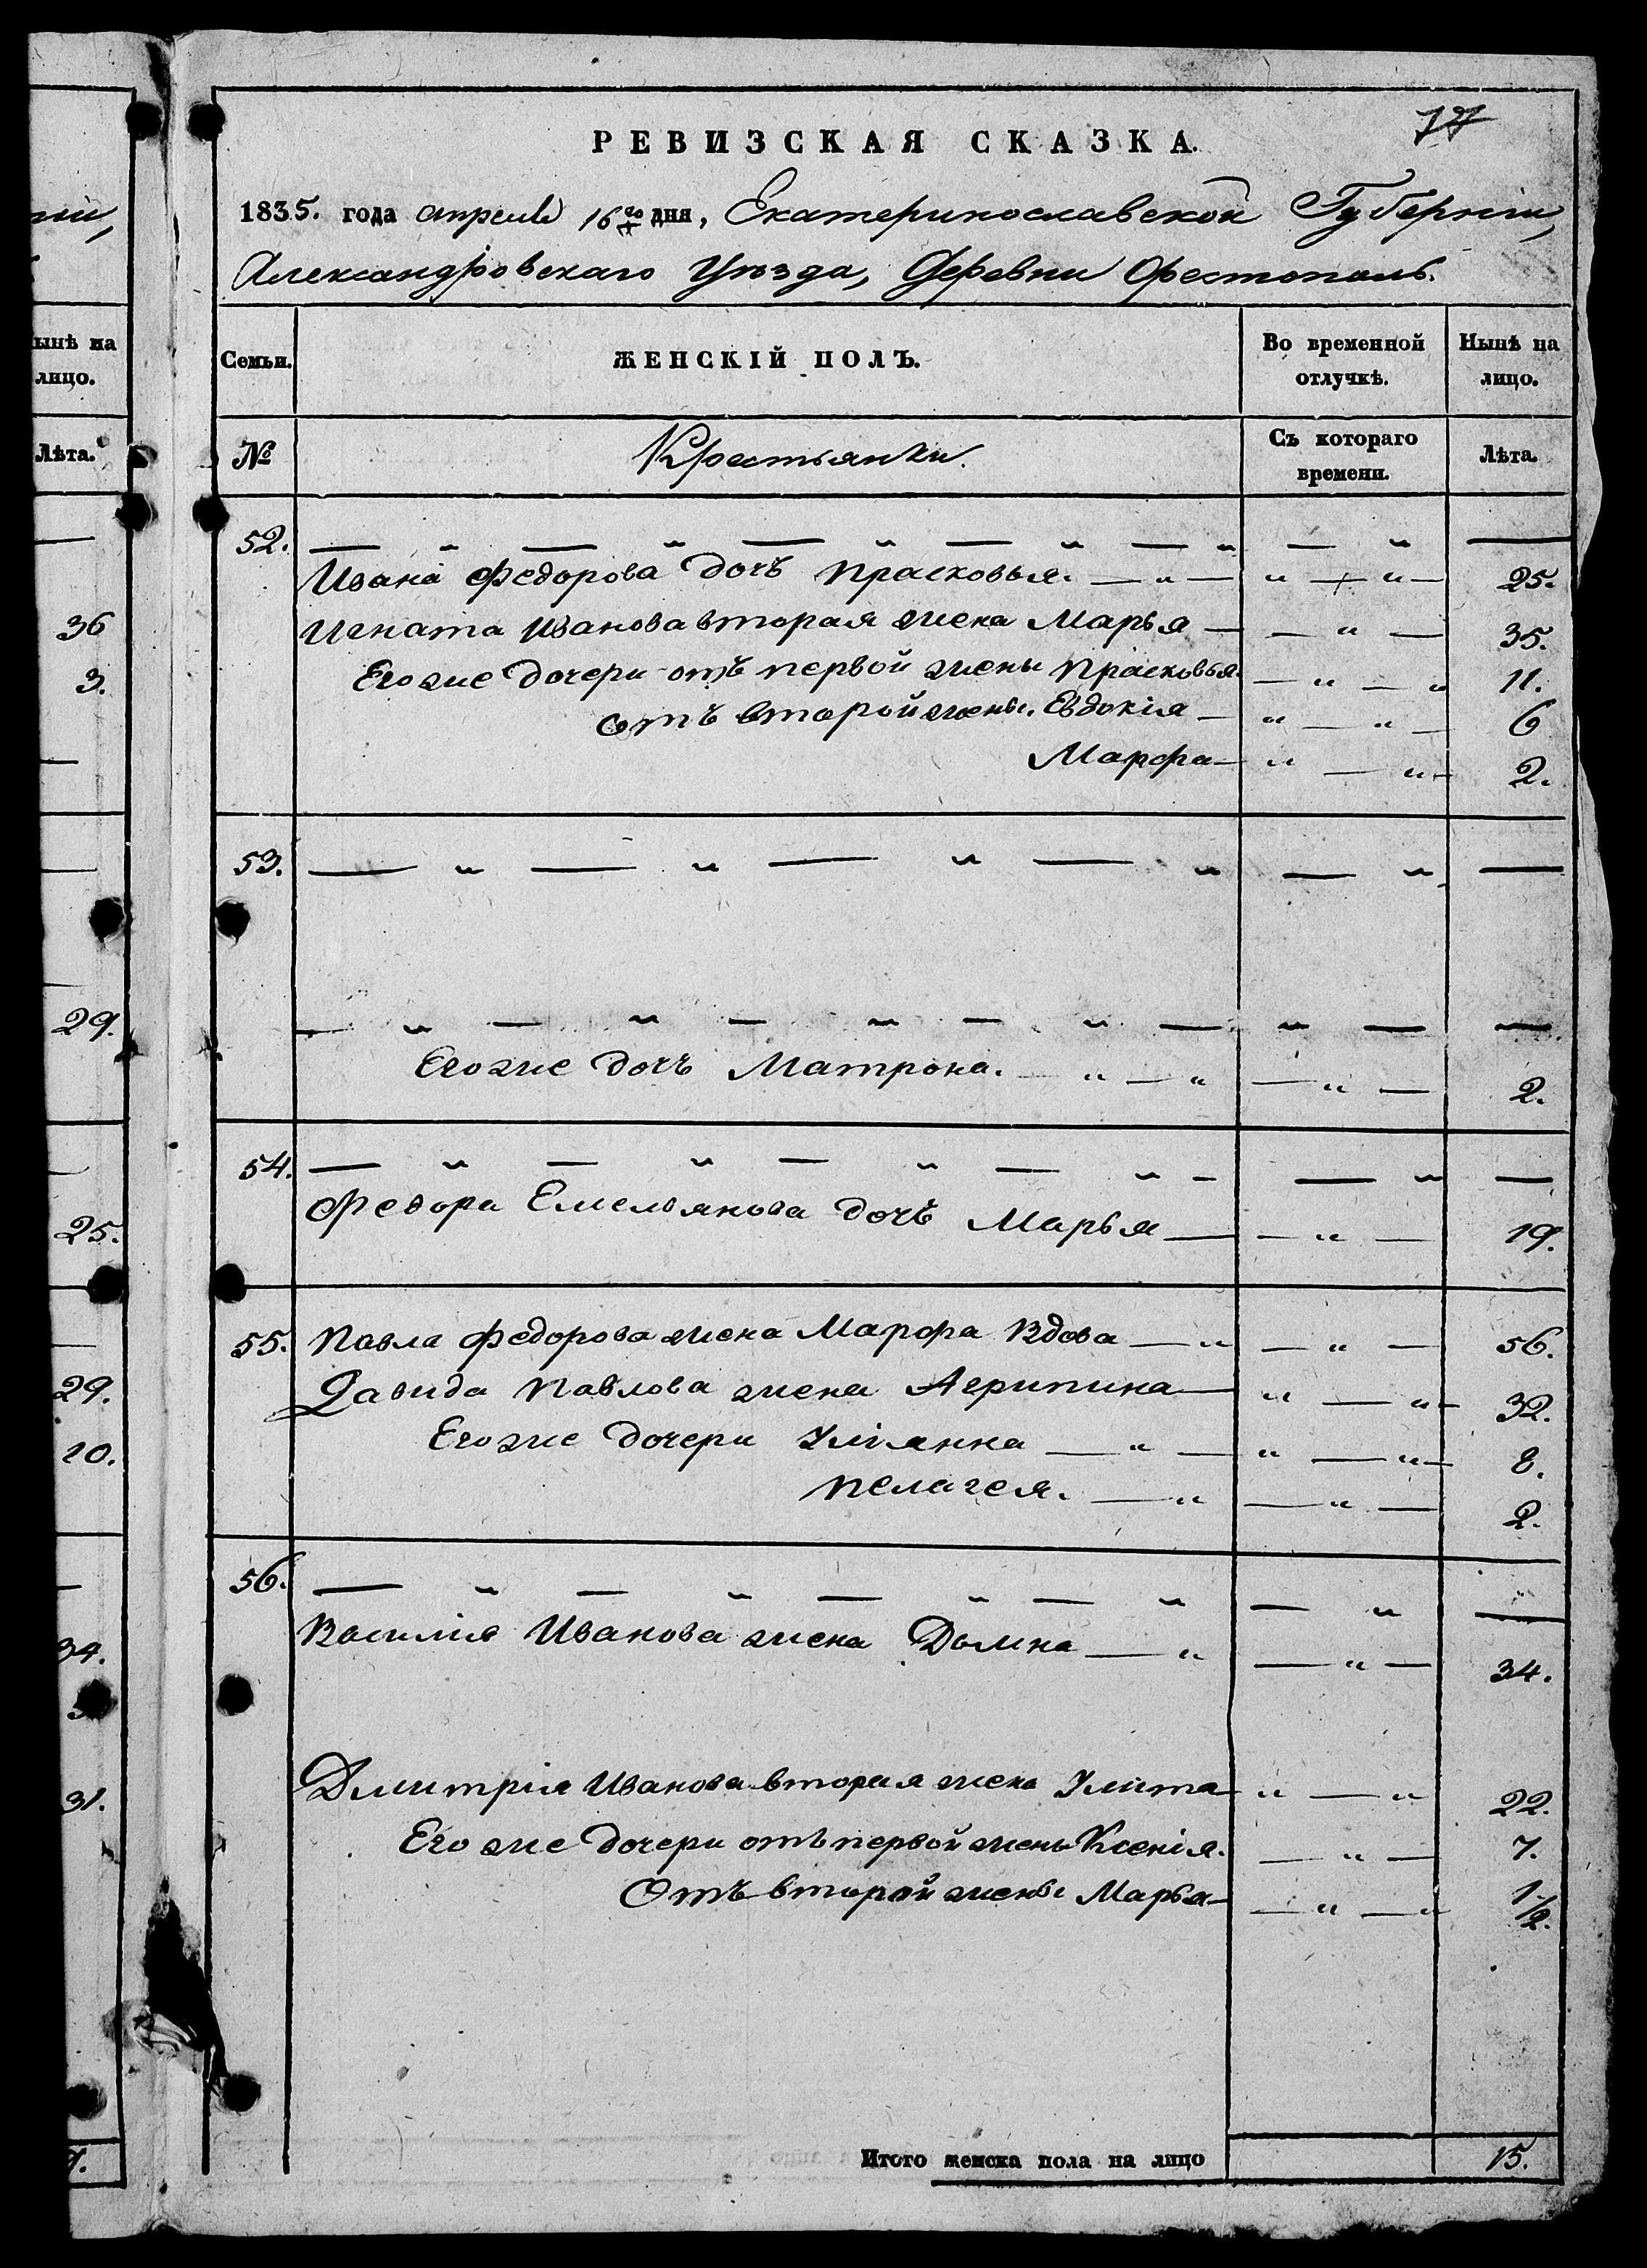 нии,
ынѣ на
лицо.
Лѣта.
36
3.
29.
25.
29.
10.
34.
31.
77
РЕВИЗСКАЯ СКАЗКА.
1835. года апреля 16го дня, Екатеринославской Губернии,
Александровскаго Уѣзда, Деревни Фестополь.
Семьи. ЖЕНСКІЙ ПОЛЪ. Во временной отлучкѣ. Нынѣ на лицо.
№ Крестьянки. Съ котораго времени. Лѣта.
52. — „ — „ — „ — „ — „ — „ —
Ивана Федорова дочь Прасковья. — „ — „ — „ — 25.
Игната Иванова вторая жена Марья — — „ — 35.
Его же дочери отъ первой жены Прасковья. — „ — „ 11.
отъ второй жены. Евдокія — „ — „ — 6
Марфа — „ — „ — 2.
53. — „ — „ — „ — „ — „ —
— „ — „ — „ — „ — „ — —
Его же дочь Матрона. — „ — „ — „ — 2.
54. — „ — „ — „ — „ — — „ —
Федора Емельянова дочь Марья — — „ — 19.
55. Павла Федорова жена Марфа Вдова — „ — „ — 56.
Давида Павлова жена Агрипина — „ — „ — 32.
Его же дочери Улиянна — „ — „ — „ — 8.
Пелагея. — „ — „ — 2.
56. — „ — „ — „ — „ — „ —
Василія Иванова жена Домна — „ — „ — 34.
Дмитрія Иванова вторая жена Улита — „ — „ 22.
Его же дочери отъ первой жены Ксенія. — „ — 7.
Отъ второй жены Марья — — „ — „ 1/2.
Итого женска пола на лицо 15.